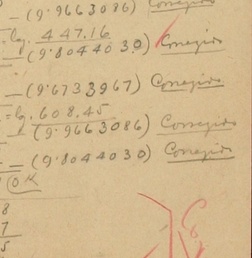 — (9.9663086) Corregido
— lg. 447.16
— (9.8044030) Corregido
— (9.6733967) Corregido
= lg. 608.45
— (9.9663086) Corregido
= — (9.8044030) Corregido
OK
8
7
5